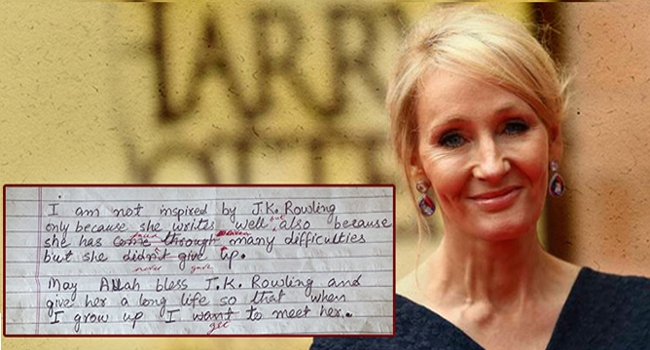 HARRY
I am not inspired by J.K. Rowling
only because she writes well, but also because
she has come through many difficulties
but she didn't give up.
never gave
May Allah bless J.K. Rowling and
give her a long life so that when
I grow up I want to meet her.
get